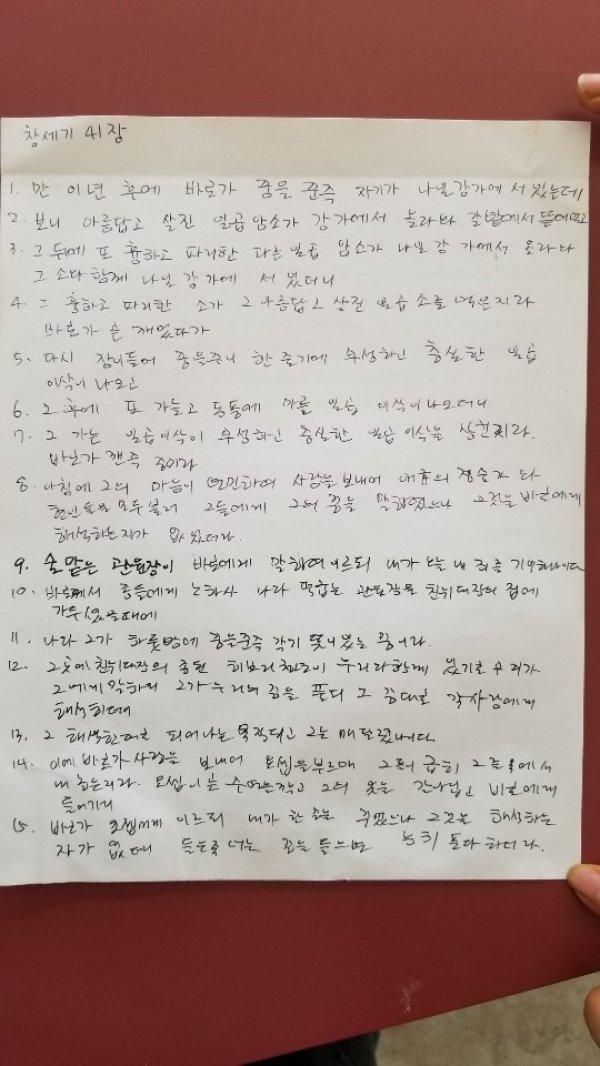 창세기 41장
1. 만 이년 후에 바로가 꿈을 꾼즉 자기가 나일강가에 서 있는데
2. 보니 아름답고 살진 일곱 암소가 강가에서 올라와 갈밭에서 뜯어먹고
3. 그 뒤에 또 흉하고 파리한 다른 일곱 암소가 나일 강 가에서 올라와
그 소와 함께 나일 강 가에 서 있더니
4. 그 흉하고 파리한 소가 그 아름답고 살진 일곱 소를 먹은지라
바로가 곧 깨었다가
5. 다시 잠이들어 꿈을꾸니 한 줄기에 무성하고 충실한 일곱
이삭이 나오고
6. 그 후에 또 가늘고 동풍에 마른 일곱 이삭이 나오더니
7. 그 가는 일곱이삭이 무성하고 충실한 일곱 이삭을 삼킨지라.
바로가 깬즉 꿈이라.
8. 아침에 그의 마음이 번민하여 사람을 보내어 애굽의 점술가 와
현인들을 모두불러 그들에게 그의 꿈을 말하였으나 그것을 바로에게
해석하는자가 없었더라.
9. 술 맡은 관원장이 바로에게 말하여이르되 내가 오늘 내 죄를 기억하나이다
10. 바로께서 종들에게 노하사 나와 떡굽는 관원장을 친위대장의 집에
가두셨을때에
11. 나와 그가 하룻밤에 꿈을꾼즉 각기 뜻이있는 꿈이라.
12. 그곳에 친위대장의 종된 히브리 청년이 우리와함께 있기로 우리가
그에게 말하매 그가우리의 꿈을 풀되 그 꿈대로 각사람에게
해석하더니
13. 그 해석한대로 되어 나는 복직되고 그는 매달렸나이다.
14. 이에 바로가 사람을 보내어 요셉을부르매 그들이 급히 그를 옥에서
내 놓은지라. 요셉이 곧 수염을깎고 그의 옷을 갈아입고 바로에게
들어가니
15. 바로가 요셉에게 이르되 내가 한 꿈을 꾸었으나 그것을 해석하는
자가 없더니 들은즉 너는 꿈을 들으면 능히 푼다 하더라.